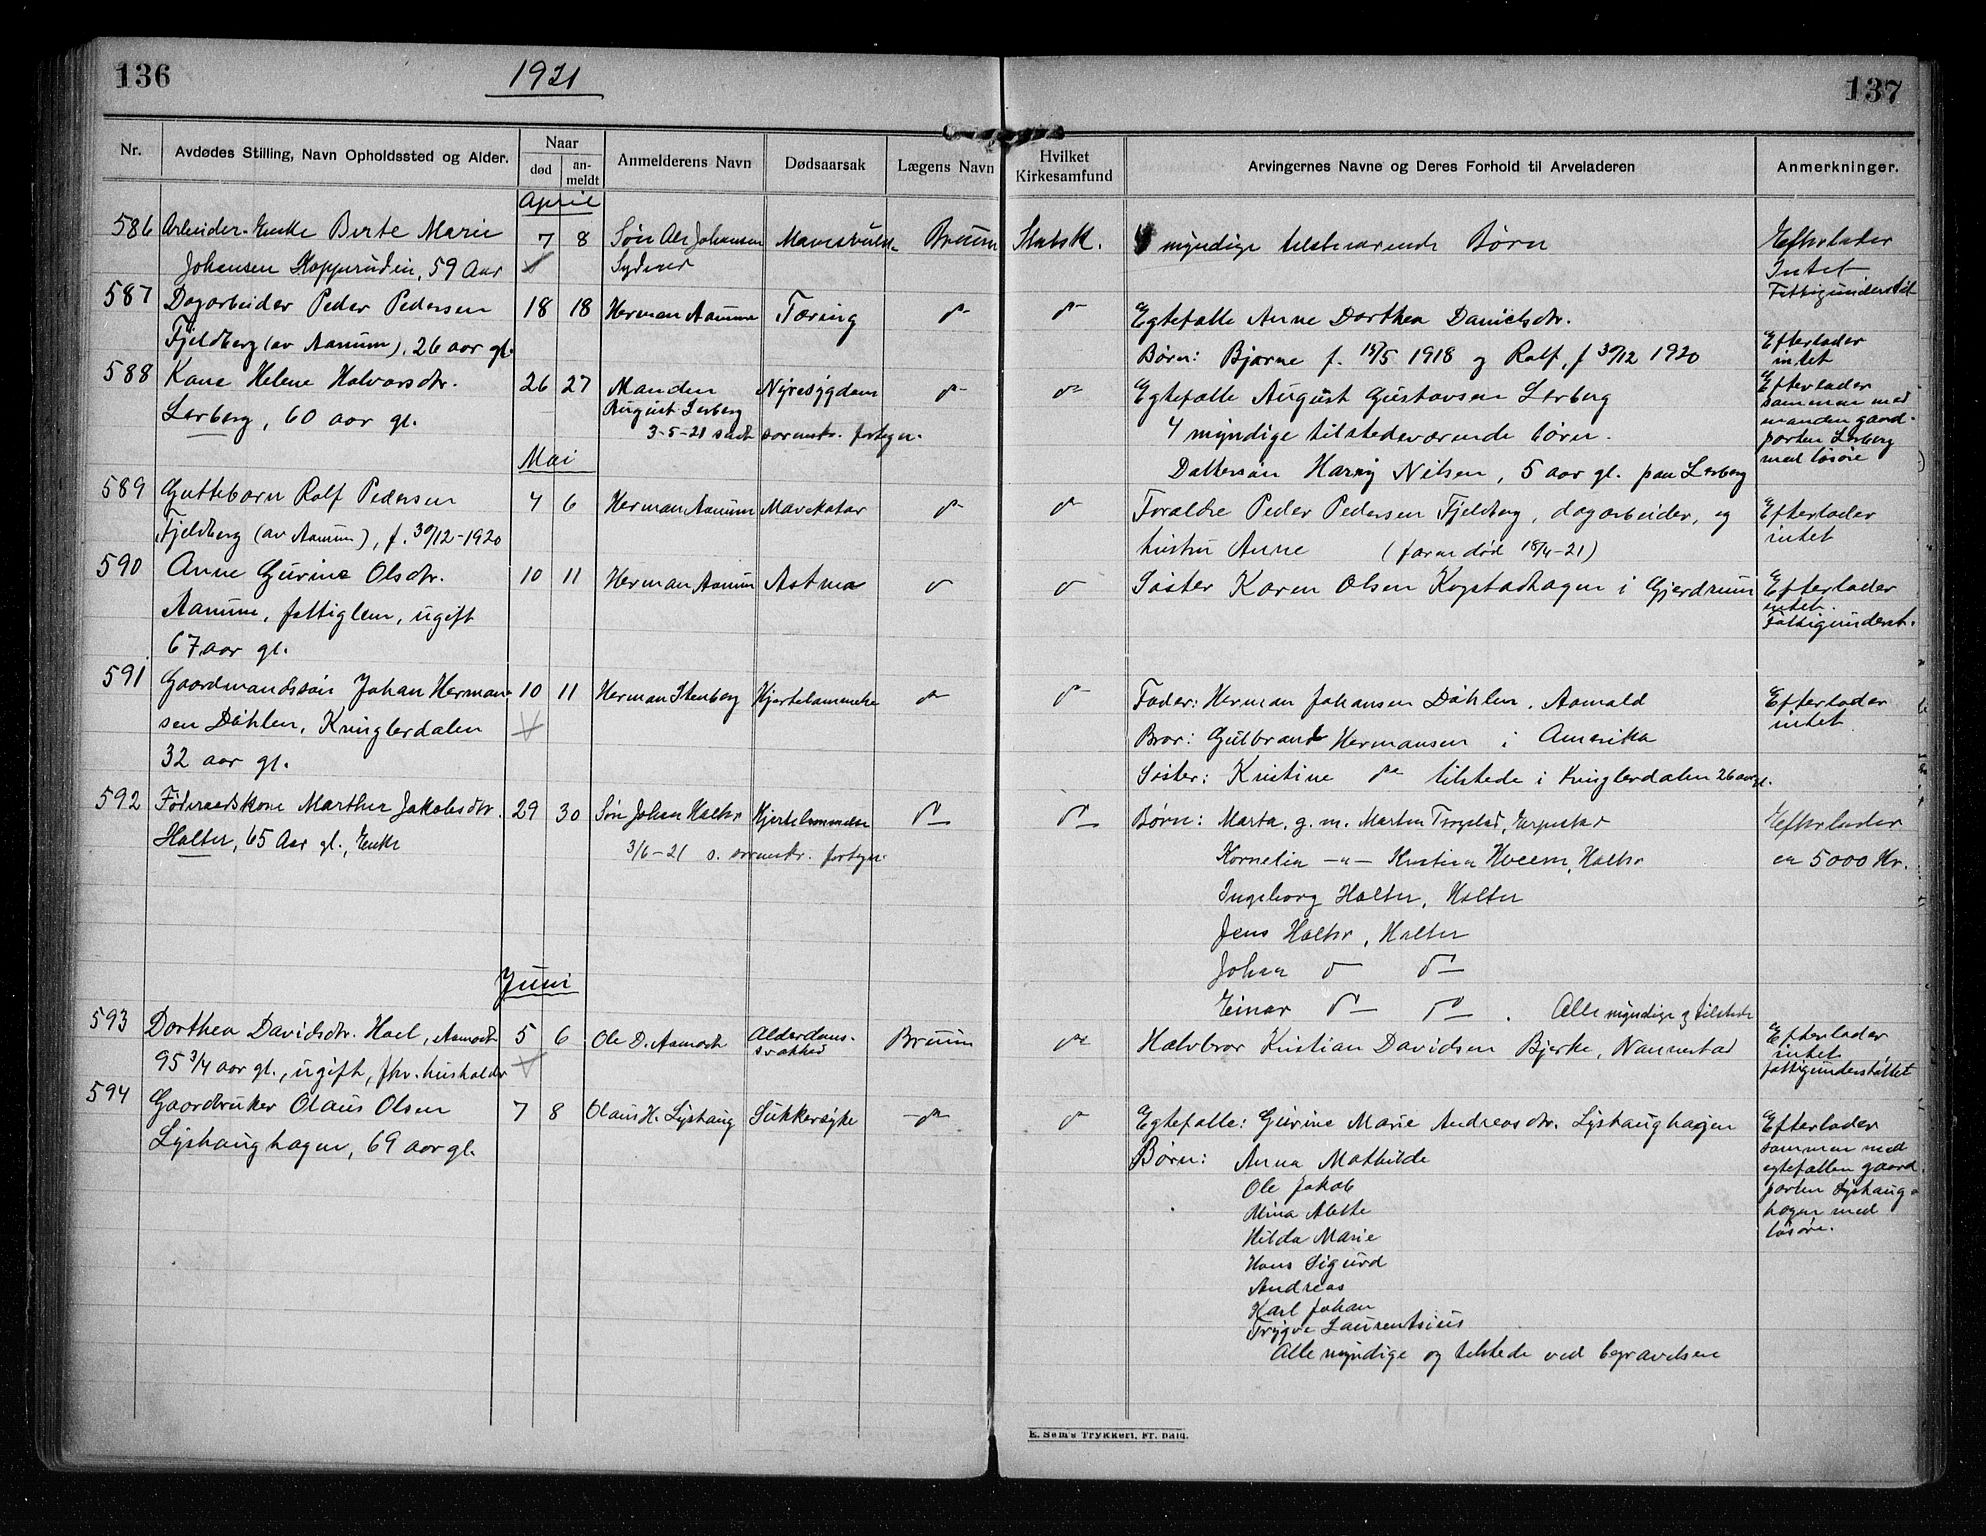 136
1921
Nr.
Avdødes Stilling, Navn Opholdssted og Alder.
Naar
død
an-
meldt
Anmelderens Navn
Dødsaarsak
Lægens Navn
April
586 Arbeider-Enke Birte Marie 7 8 Søn Johansen Bruun
Johansen Hopperudin, 59 Aar
587 Dagarbeider Peder Pedersen 18 18 Herman Aamum Tæring do
Fjeldberg (av Aamum), 26 aar gl.
588 Kone Helene Halvorsdtr. 26 27 Manden Nyresygdom do
Lerberg, 60 aar gl. August Lerberg
3-5-21 sendt sorenskr. fortegn.
Mai
589 Guttebarn Rolf Pedersen 4 6 Herman Aamum Mavekatar do
Fjeldberg (av Aamum), f. 30/12-1920
590 Anne Gurine Olsdtr. 10 11 Herman Aamum Astma do
Aamum, fattiglem, ugift
67 aar gl.
591 Gaardmandssøn Johan Herman- 10 11 Herman Stenberg Hjertelammelse do
sen Døhlen, Kringlerdalen
32 aar gl.
592 Føderaadskone Marthe Jakobsdtr. 29 30 Søn Johan Halter Hjertelammelse do
Halter, 65 Aar gl., Enke
3/6-21 s. sorenskr. fortegn.
Juni
593 Dorthea Davidsdtr. Hoel, Aamodt 5 6 Ole D. Aamodt Alderdoms- Bruun
svakhed
95 3/4 aar gl., ugift, fhv. husholder
594 Gaardbruker Olaus Olsen 7 8 Olaus H. Lyshaug Sukkersyke do
Lyshaughagen, 69 aar gl.
137
Hvilket
Kirkesamfund
Arvingernes Navne og Deres Forhold til Arveladeren
Anmerkninger.
Statsk. 4 myndige tilstedeværende Børn Efterlader
Intet
Fattigunderstøt
do Egtefælle Anne Dorthea Danielsdtr.
Børn: Bjarne f. 15/5 1918 og Rolf, f 30/12 1920 Efterlader
intet
do Egtefælle August Gustavsen Lerberg Efterlader
sammen med
4 myndige tilstedeværende børn. manden gaard-
parten Lerberg
Dattersøn Harry Nilsen, 5 aar gl. paa Lerberg med løsøre
do Foraldre Peder Pedersen Fjeldberg, dagarbeider, og Efterlader
hustru Anne (faren død 18/4-21) intet
do Søster Karen Olsen Kogstadhagen i Gjerdrum Efterlader
intet.
Fattigunderst.
do Fader: Herman Johansen Døhlen, Aamald Efterlader
intet
Bror: Gulbrand Hermansen i Amerika
Søster: Kristine do tilstede i Kringlerdalen 26 aar gl.
do Børn: Marta, g. m. Martin Efterlader
Kornelia -"- Kristian Hveem, Halter ca 5000 Kr.
Ingeborg Halter, Halter
Jens Halter, Halter
Johan do do
Einar do do. Alle myndige og tilstede
do Halvbror Kristian Davidsen Bjerke, Nannestad Efterlader
intet
fattigunderstøttet
do Egtefælle: Gurine Marie Andreasdtr. Lyshaughagen Efterlader
sammen med
Børn: Anna Mathilde egtefællen gaard
Ole Jakob parten Lyshaug-
Alina Alette hagen med
Hilda Marie løsøre.
Hans Sigurd
Andreas
Karl Johan
Trygve Laurentsius
Alle myndige og tilstede ved begravelsen
E. Sem's Trykkeri, Fr.hald.